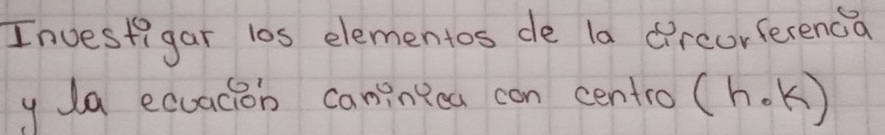 Investigar los elementos de la circurferencia
y la ecuación caninica con centro (h.K)